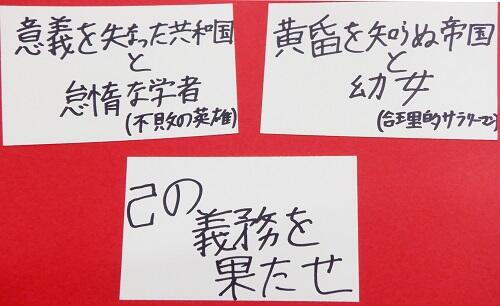 意義を失なった共和国
と
怠惰な学者
(不敗の英雄)
黄昏を知らぬ帝国
と
幼女
(合理的サラリーマン)
己の
義務を
果たせ